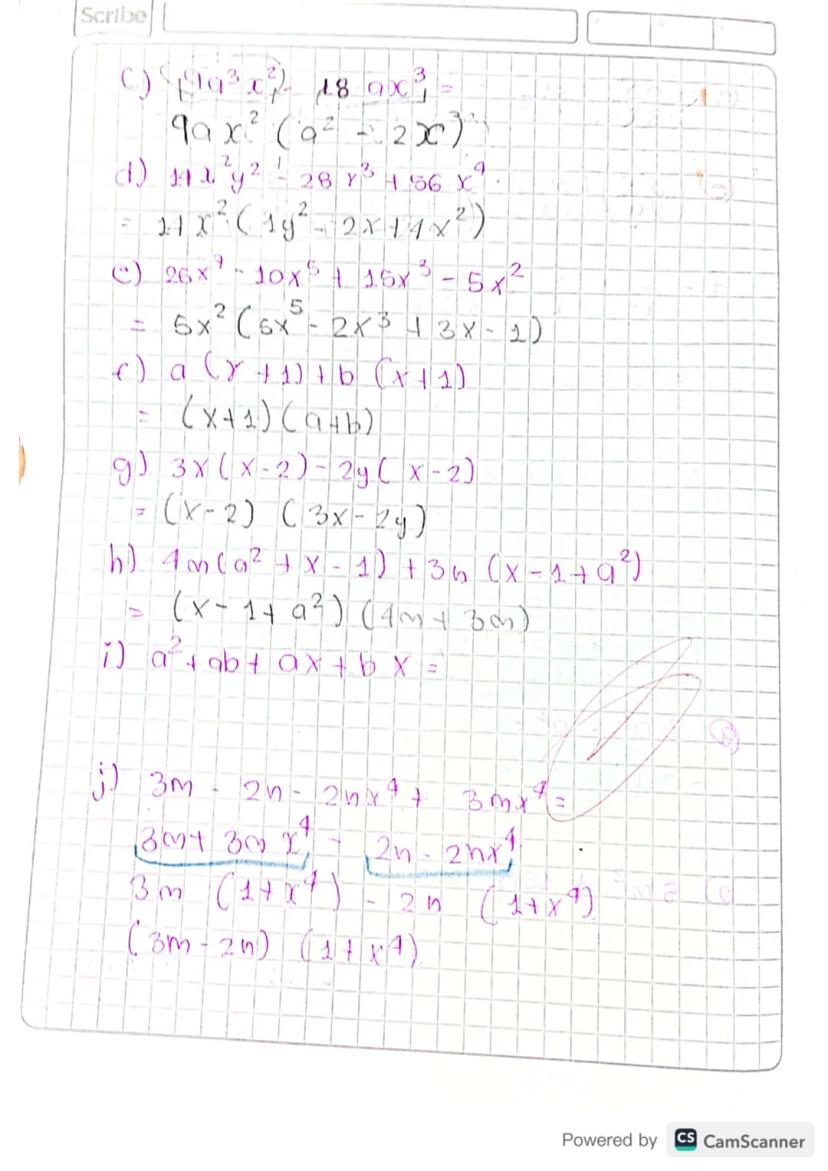 Scribe
c) (9a³x²) - 18ax³ =
9ax² (a² - 2x)
d) 14x²y² - 28x³ + 56x⁴.
= 14x² (1y² - 2x + 4x²)
e) 25x⁷ - 10x⁵ + 15x³ - 5x²
= 5x² (5x⁵ - 2x³ + 3x - 1)
f) a (x + 1) + b (x + 1)
= (x+1) (a+b)
g) 3x (x - 2) - 2y (x - 2)
= (x - 2) (3x - 2y)
h) 4m (a² + x - 1) + 3n (x - 1 + a²)
= (x - 1 + a²) (4m + 3m)
i) a² + ab + ax + bx =
j) 3m - 2n - 2nx⁴ + 3mx⁴ =
3m + 3mx⁴ - 2n - 2nx⁴
3m (1 + x⁴) - 2n (1 + x⁴)
(3m - 2n) (1 + x⁴)
Powered by CS CamScanner